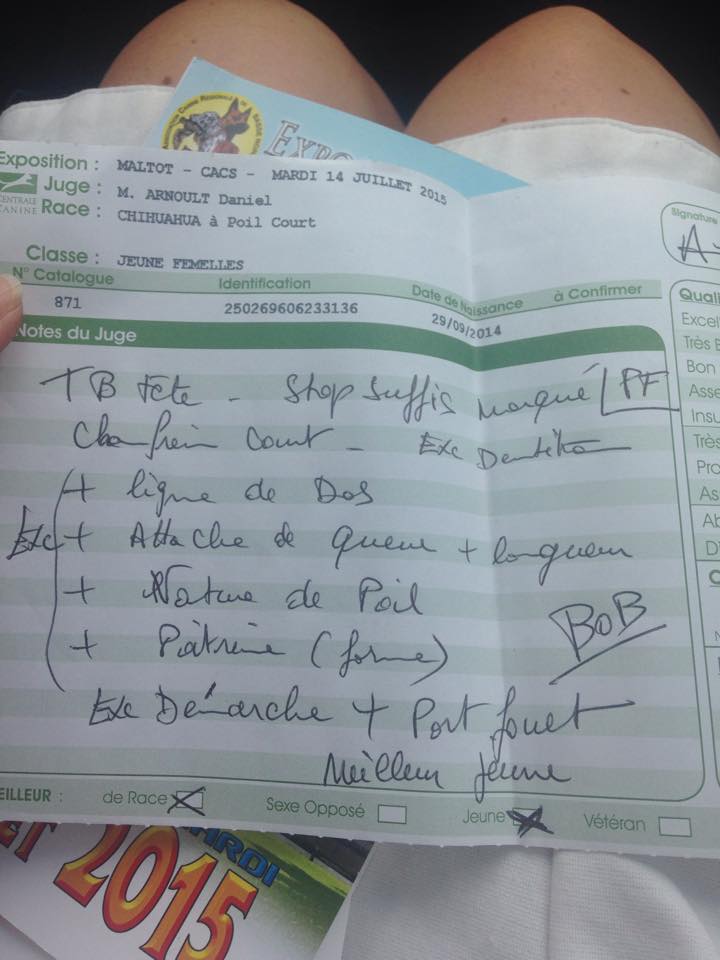 EXPO
Exposition : MALTOT - CACS - MARDI 14 JUILLET 2015
Juge : M. ARNOULT Daniel
CENTRALE
CANINE
Race : CHIHUAHUA à Poil Court
Signature
Classe : JEUNE FEMELLES
N° Catalogue Identification Date de Naissance à Confirmer
871 250269606233136 29/09/2014
Notes du Juge
TB tête - Stop suffis marqué PF
Chanfrein court - Exc Dentition
+ ligne de Dos
Exc + Attache de queue + longueur
+ Nature de Poil
+ Poitrine (forme)
BOB
Exc Démarche + Port fouet
Meilleur jeune
EILLEUR : de Race Sexe Opposé Jeune Vétéran
Quali
Excel
Très B
Bon
Asse
Insu
Très
Pro
As
Ab
ARDI
ET 2015